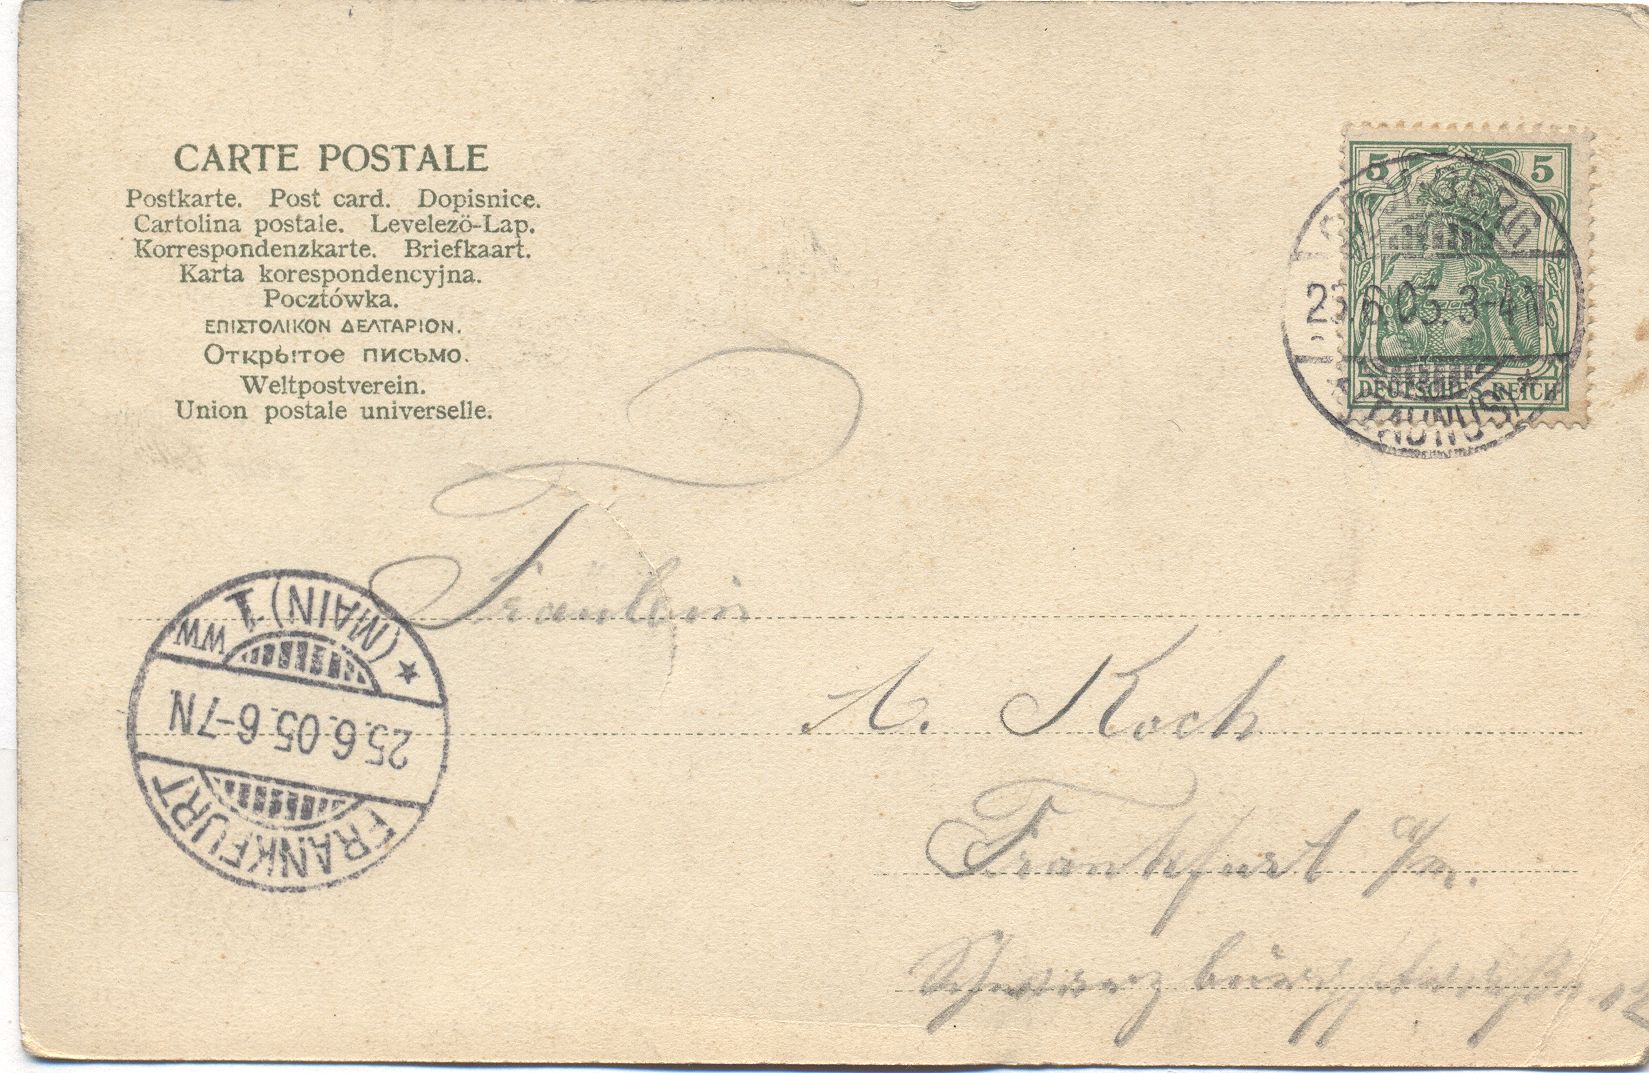 CARTE POSTALE
Postkarte. Post card. Dopisnice.
Cartolina postale. Levelező-Lap.
Korrespondenzkarte. Briefkaart.
Karta korespondencyjna.
Pocztówka.
ΕΠΙΣΤΟΛΙΚΟΝ ΔΕΛΤΑΡΙΟΝ.
Открытое письмо.
Weltpostverein.
Union postale universelle.
5 5
DEUTSCHES REICH
.6.05.3-4N
(TAUNUS) *
Fräulein
A. Koch
Frankfurt a/m.
FRANKFURT
25.6.05.6-7N.
* (MAIN) 1 WW